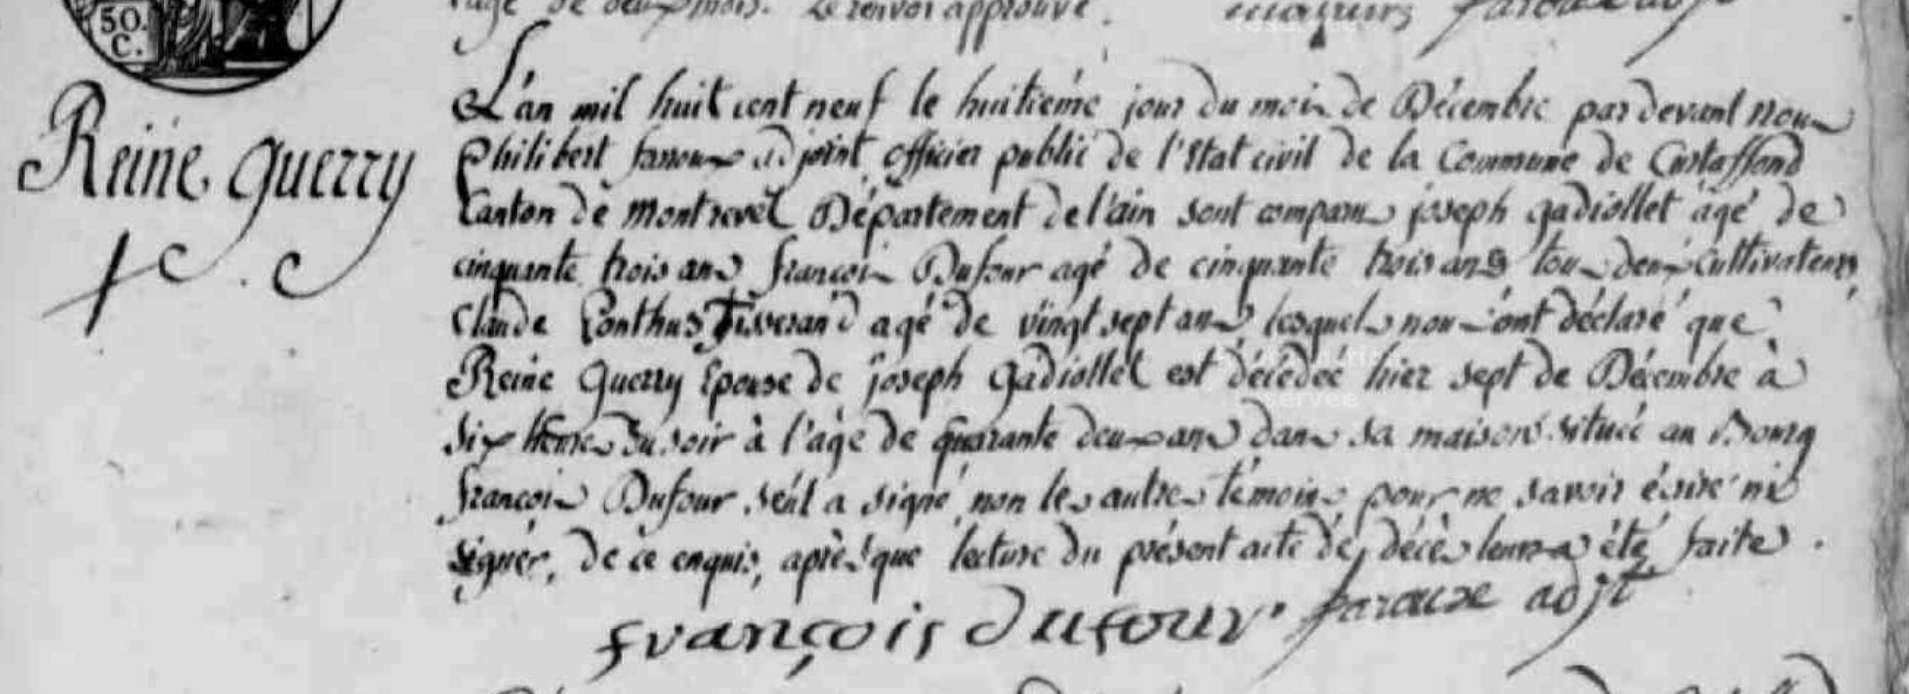 50.
C.
l'age de deux mois. Le renvoi approuvé.
Reine Guerry
L'an mil huit cent neuf le huitiéme jour du mois de Décembre par devant Nous
Philibert faroux adjoint officier public de l'Etat civil de la Commune de Curtaffond
Canton de Montrevel Département de l'ain sont comparus joseph gadiollet àgé de
cinquante trois ans françois Dufour agé de cinquante trois ans tous deux cultivateurs,
Claude Ponthus Tisserand agé de vingt sept ans lesquels nous ont déclaré que
Reine Guerry Epouse de joseph gadiollet est décédée hier sept de Décembre à
six heures du soir à l'age de quarante deux ans dans sa maison située au Bourg
françois Dufour seul a signé non les autres témoins pour ne savoir écrire ni
signer, de ce enquis, après que lecture du présent acte de décès leur a été faite.
françois dufour. faroux adjt